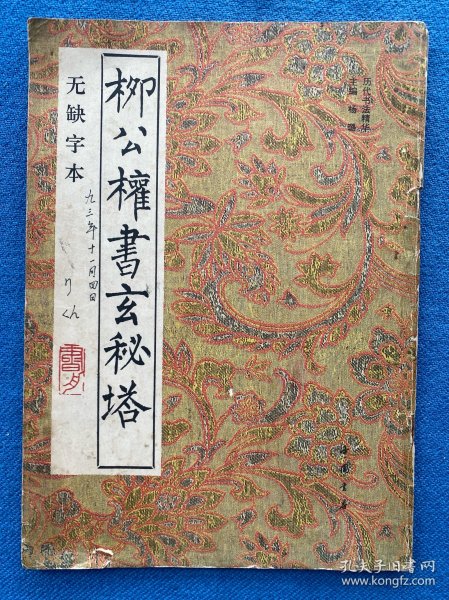 历代书法精华
主编 杨璐
柳公權書玄秘塔
无缺字本
九三年十一月四日
中国书店
孔夫子旧书网
www.kongfz.com